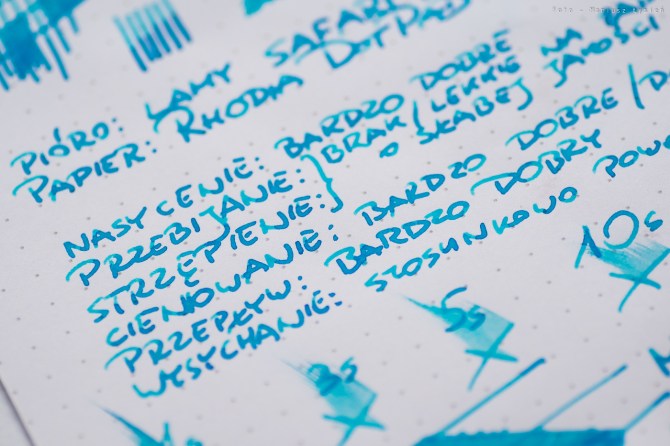 PIÓRO: LAMY SAFARI
PAPIER: RHODIA DOTPAD
NASYCENIE: BARDZO DOBRE
PRZEBIJANIE: } BRAK / LEKKIE NA
STRZĘPIENIE: } O SŁABEJ JAKOŚCI
CIENIOWANIE: BARDZO DOBRE /D
PRZEPŁYW: BARDZO DOBRY
WYSYCHANIE: STOSUNKOWO POWO
3s 5s 10s